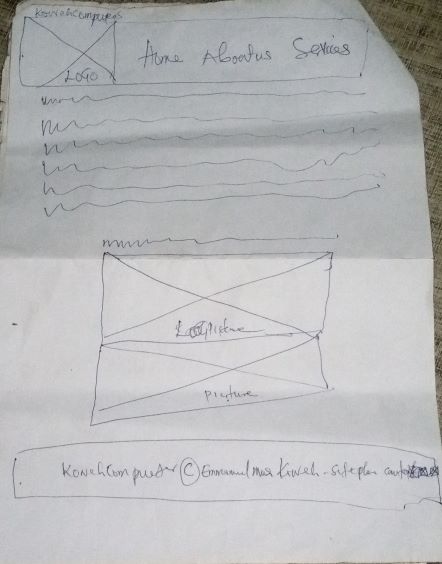 KowehComputers
LOGO
Home Aboutus Services
Picture
picture
KowehComputer © Emmanuel Koweh - Siteplan